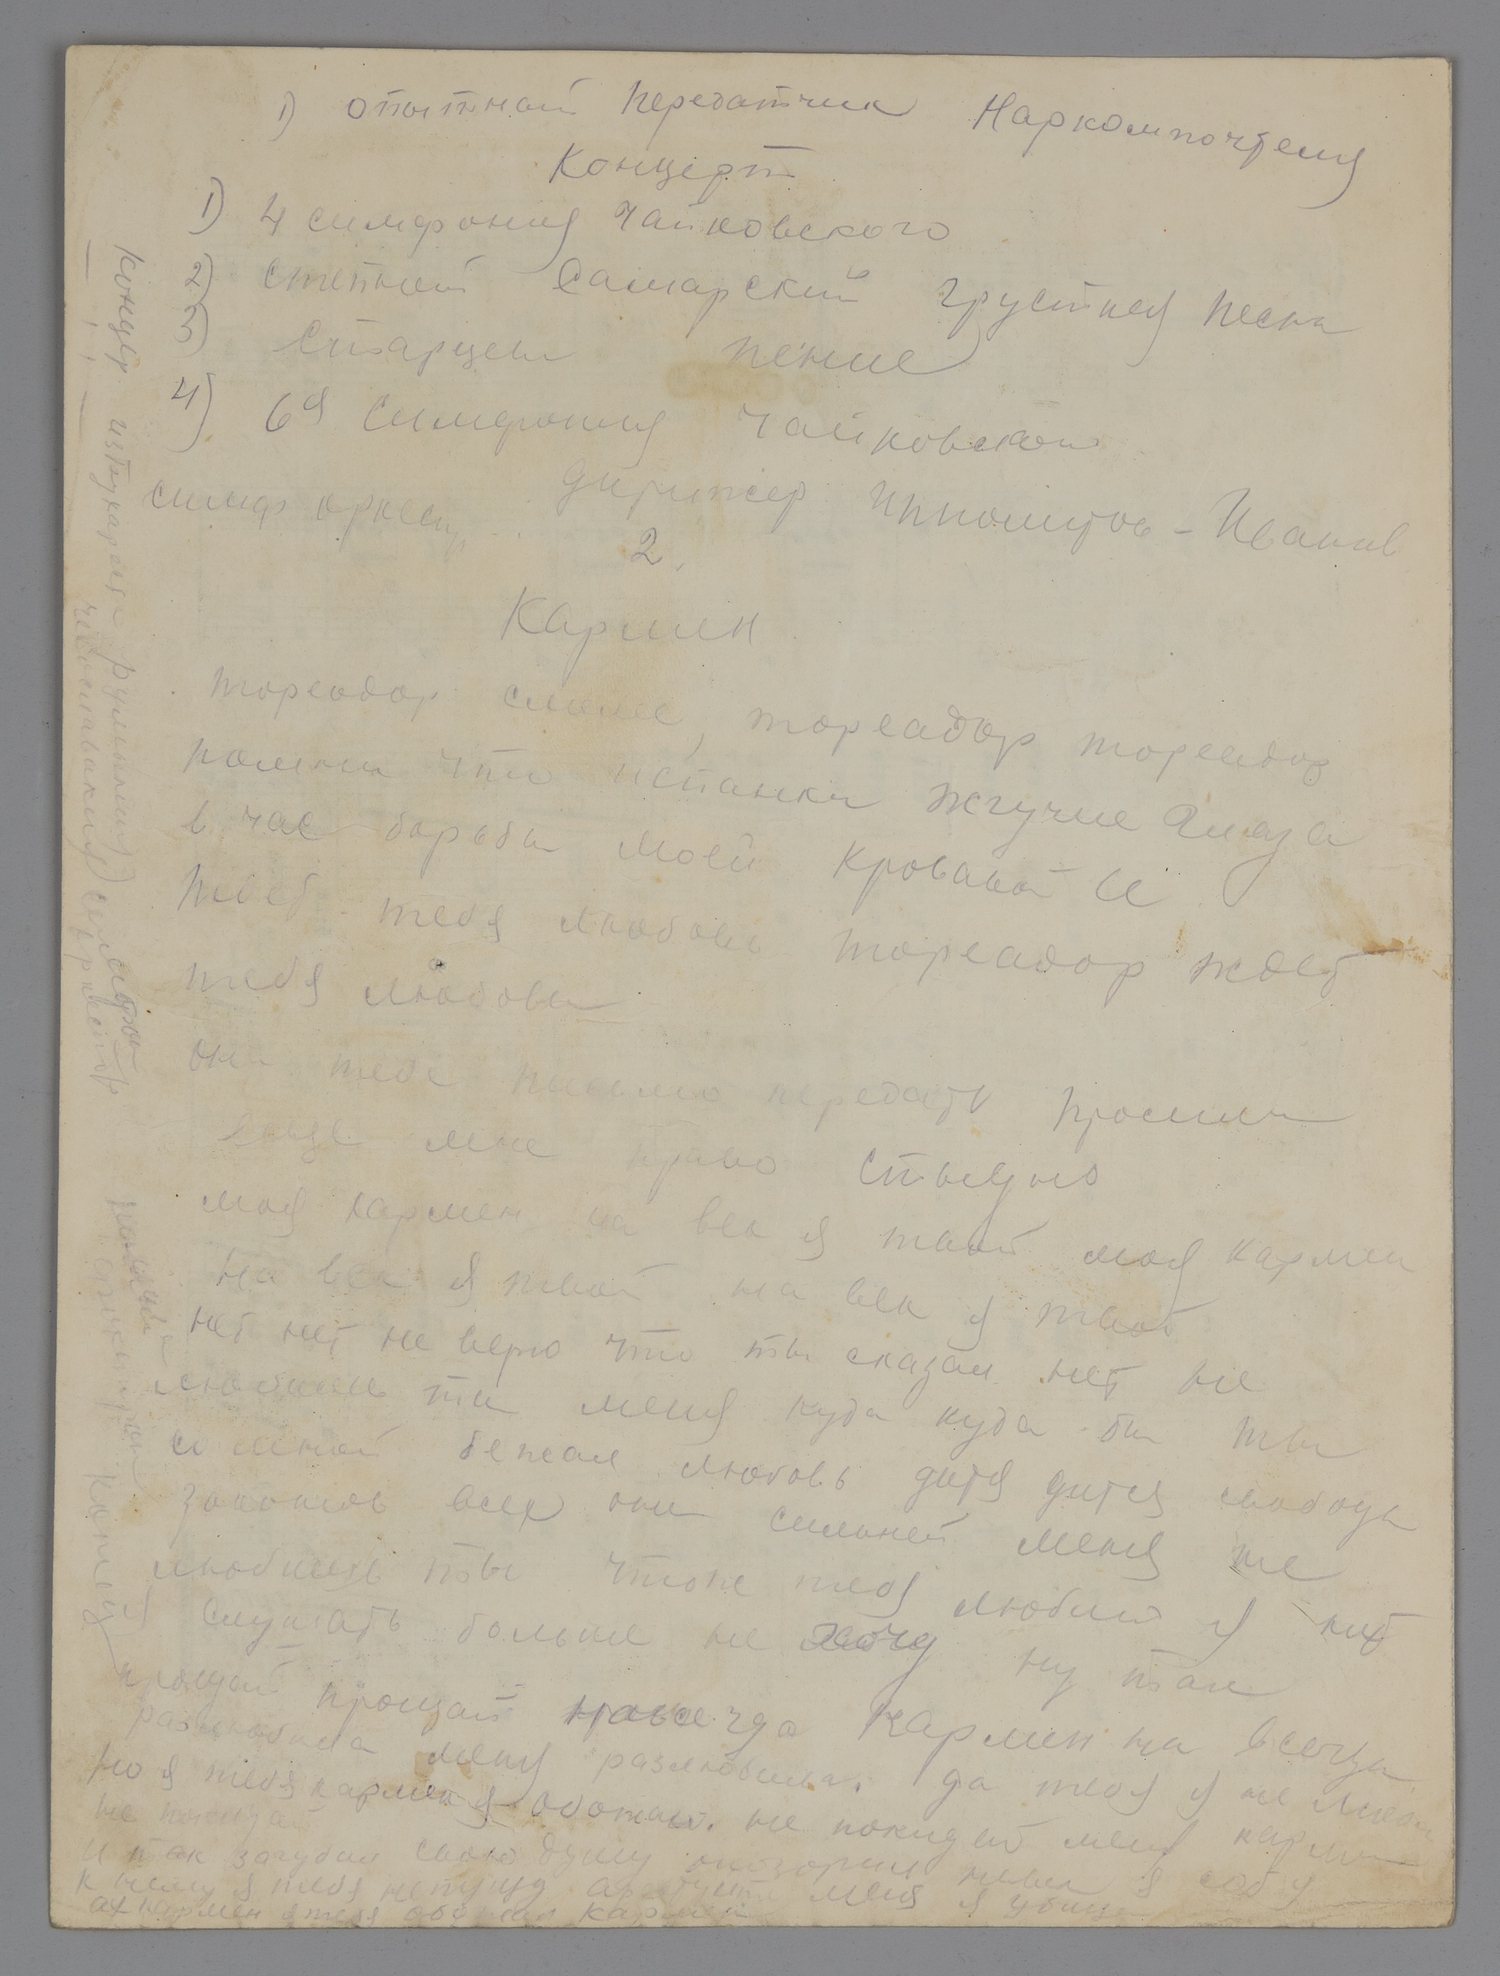 1) опытный передатчик Наркомпочтеля
Концерт
1) 4 симфония Чайковского
2) степной самарский грустная песня
3) Старцем пение
4) 6я симфония Чайковского
симф оркестр дирижер Ипполитов-Иванов
2.
Кармен
тореадор смелее, тореадор тореадор
помни что испанки жгучие глаза
в час борьбы моей кровавой и
ждет тебя любовь тореадор ждет
тебя любовь
она тебе письмо передать просила
еще мне право стыдно
моя кармен на век я твой моя кармен
на век я твой на век я твой
нет нет не верю что ты сказал нет не
любишь ты меня куда куда бы ты
со мной бежал любовь дитя дитя свободы
законов всех она сильней меня не
любишь ты чтоже тебя люблю я нет
слушать больше не хочу ну так
прощай прощай навсегда Кармен на всегда
разлюбила меня разлюбила. да тебя я не люблю
но я тебя кармен я обожаю. не покидай меня кармен
не покидай
и так загубил свою душу опозорил
к нему я тебя непущу арестуйте меня я убийца
ах кармен я тебя обожал кармен
концер из Бухареста румыния
чехославакия
конец